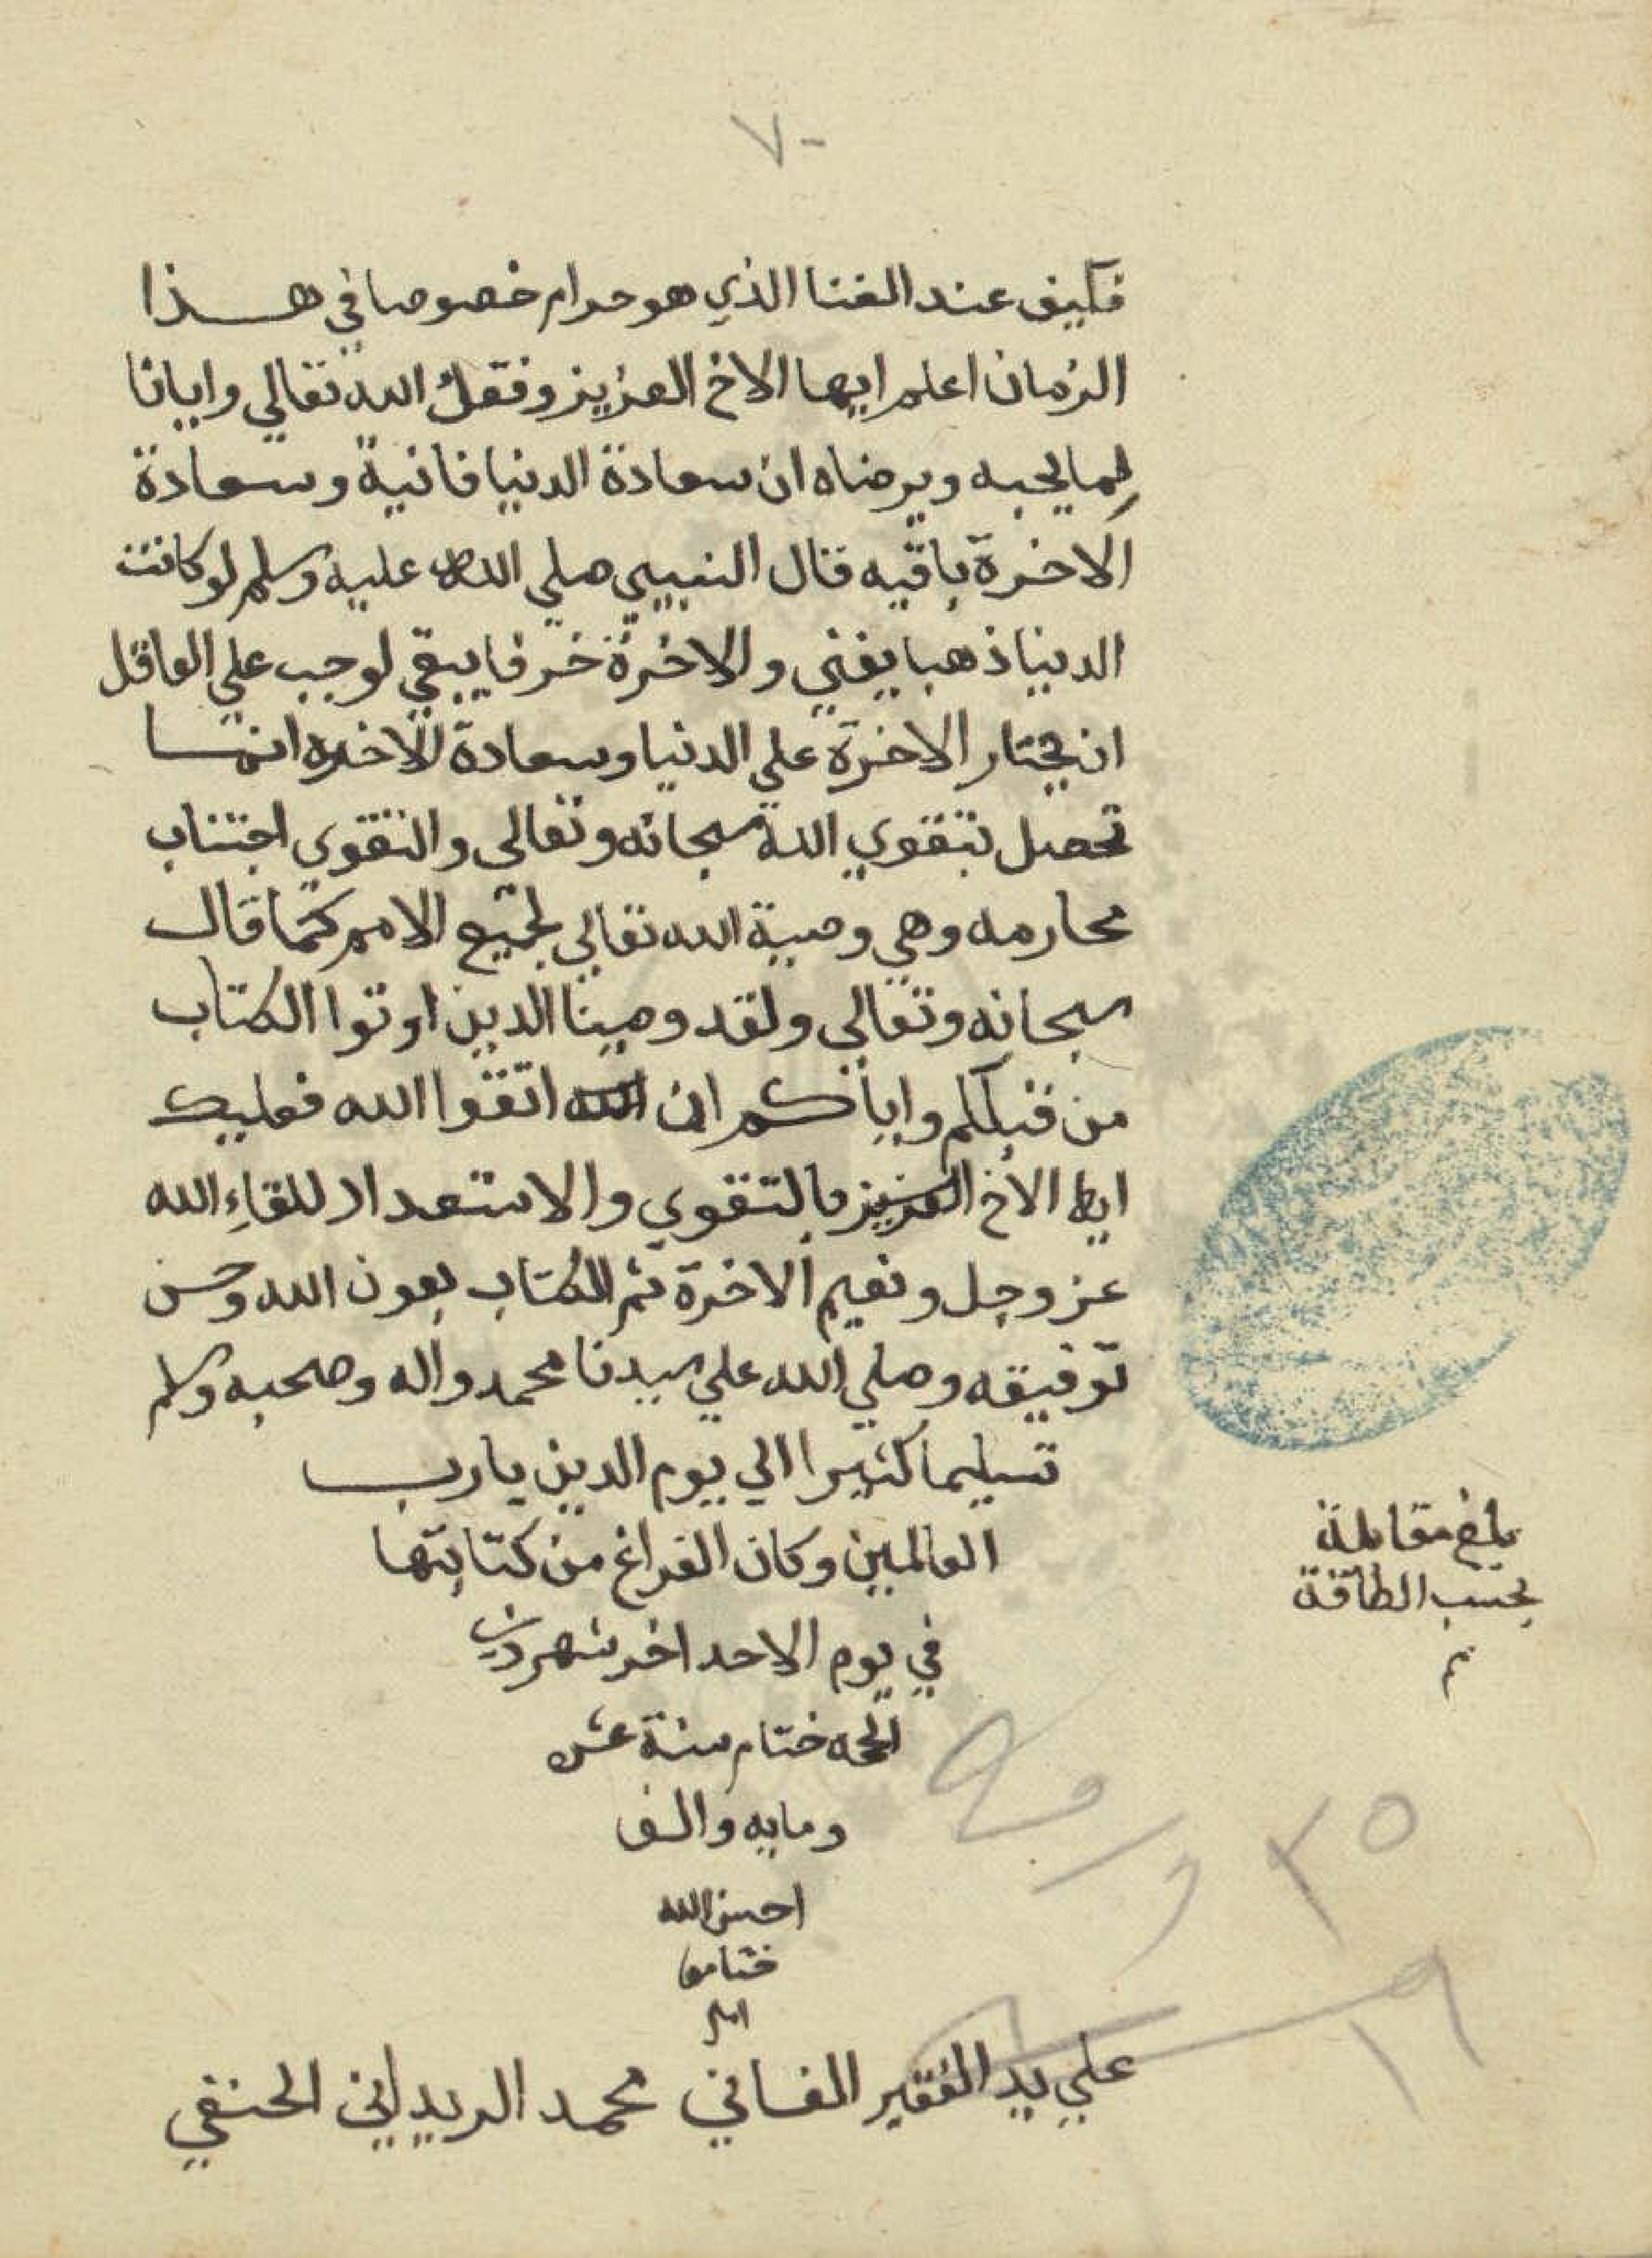 ٧٠
فكيف عند الغنا الذي هو حرام خصوصا في هذا
الزمان اعلم ايها الاخ العزيز وفقك الله تعالي وايانا
لما يحبه ويرضاه ان سعادة الدنيا فانية وسعادة
الاخرة باقيه قال النبي صلي الله عليه وسلم لو كانت
الدنيا ذهبا يفني والاخرة خزفا يبقي لوجب علي العاقل
ان يختار الاخرة علي الدنيا وسعادة الاخره انما
تحصل بتقوي الله سبحانه وتعالى والتقوي اجتناب
محارمه وهي وصية الله تعالي لجميع الامم كما قال
سبحانه وتعالى ولقد وصينا الذين اوتوا الكتاب
من قبلكم واياكم ان اتقوا الله فعليك
ايها الاخ العزيز بالتقوي والاستعداد للقاء الله
عز وجل ونعيم الاخرة تم الكتاب بعون الله وحسن
توفيقه وصلي الله علي سيدنا محمد واله وصحبه وسلم
تسليما كثيرا الي يوم الدين يا رب
العالمين وكان الفراغ من كتابتها
في يوم الاحد اخر شهر ذي
الحجه ختام سنة عشر
ومايه والف
احسن الله
ختامها
امين
علي يد الفقير الفاني محمد الريداني الحنفي
بلغ مقابلة
بحسب الطاقة
م
٢٥ ورقة